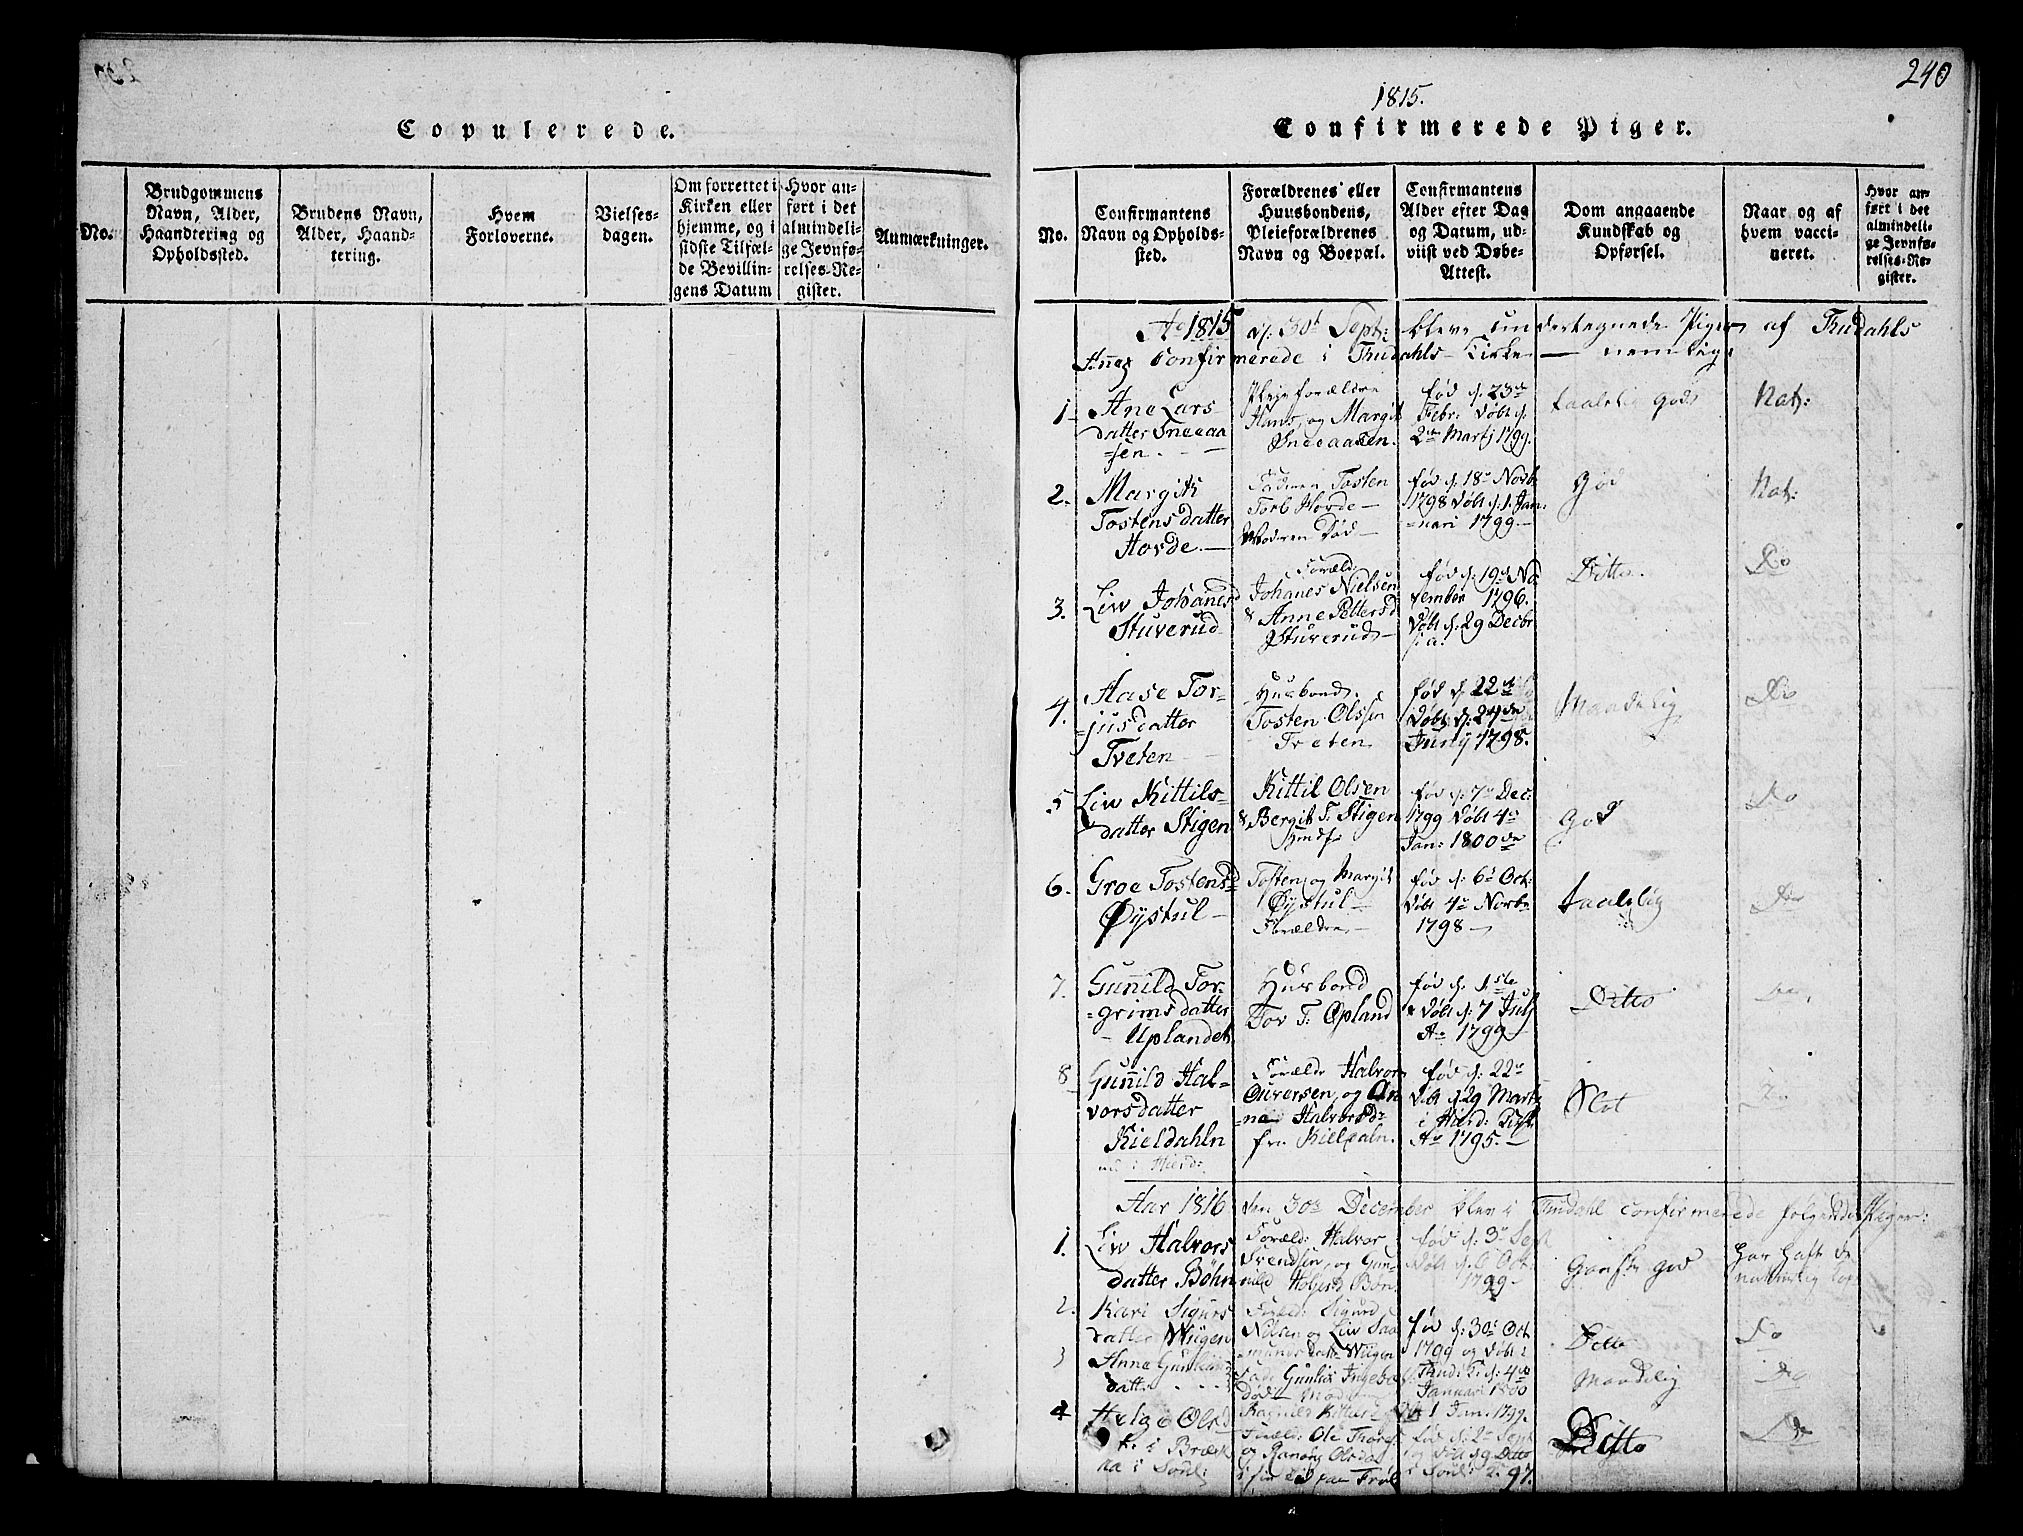 Copulerede.
No.
Brudgommens
Navn, Alder,
Haandtering og
Opholdssted.
Brudens Navn,
Alder, Haand-
tering.
Hvem
Forloverne.
Vielses-
dagen.
Om forrettet i
Kirken eller
hjemme, og i
sidste Tilfæl-
de Bevillin-
gens Datum
Hvor an-
ført i det
almindeli-
ge Jevnfø-
relses-Re-
gister.
Anmærkninger.
240
1815.
Confirmerede Piger.
No.
Confirmantens
Navn og Opholds-
sted.
Forældrenes eller
Huusbondens,
Pleieforældrenes
Navn og Boepæl.
Confirmantens
Alder efter Dag
og Datum, ud-
viist ved Døbe-
Attest.
Dom angaaende
Kundskab og
Opførsel.
Naar og af
hvem vacci-
neret.
Hvor an-
ført i det
almindeli-
ge Jevnfø-
relses-Re-
gister.
Ao 1815 d: 30t Sept: bleve undertegnede Piger af Tindahls
Confirmerede i Tindahls Kirke — nemlig:
1
Ane Lars-
datter Sneeaa
=sen.
Pleje forældre
Hans, og Margit
Sneeaasen.
fød d. 23de
Febr: Døbt d.
2den Martj 1799.
taalelig god
Nat:
2.
Margith
Tostensdatter
Hovde.—
Faderen Tosten
Torb Hovde—
Moderen Død—
fød d. 18de Novb
1798 Døbt d. 1. Jan-
=uari 1799—
God
Nat:
3.
Liw Johanesd
Stuverud
Foræld:
Johanes Nielsen
& Anne Pettersd
Stuverud—
fød d. 19de No
vember 1796.
Døbt d: 29 Decbr
s: a.
Ditto.
Do
4.
Aase Tor-
=jusdatter
Tveten
Husbond.
Tosten Olsen
Tveten
fød d. 22de
Døbt d. 24de
Juny 1798.
Maadelig
Do
5
Liw Kittils-
datter Stigen
Kittil Olsen
& Bergit T. Stigen
fød d. 7de Dec:
1799 Døbt 4de
Jan: 1800
God
Do
6.
Groe Tostensd
Øystul—
Tosten og Margit
Øystul—
Forældre—
fød d. 6te Oct:
Døbt 4de Novbr
1798—
taalelig
Do
7.
Gunild Tor-
=grimsdatter
Uplandet
Husbond
Tov T: Opland
fød d. 1ste
& Døbt d: 7 July
Ao 1799
Ditto
Do
8
Gunild Hal-
vorsdatter
Kieldahln
Foræld: Halvor
Ouversen, og An
=ne Halvorsd:
fra Kieldaln.
fød d: 22de
Døbt d. 29 Martj
i Hierd: Kirke
Ao 1795.—
Slet
Do
Aar 1816 den 30te December blev i Tindahl confirmerede følgende Piger:
1.
Liw Halvors
datter Böhn
Foræld: Halvor
Svendsen, og Gun-
nild Bøn
fød d. 3de Sept
Døbt d. 6 Oct:
1799—
Ganske god
Har haft de
naturlig
2.
Kari Sigurs
datter Wügen
Foræld: Sigurd
og Liw Saa
=munds datter Wiigen
fød d: 30te Oct
1799 og Døbt i
Tind: K. d: 4de
Januari 1800
Ditto
Do
3
Anna
datt:
Maadelig
Do
4
Helge Olsd
i Bræk
Foræld: Ole
og Olsdat
fød d: 2de Sept
97.
Ditto
Do